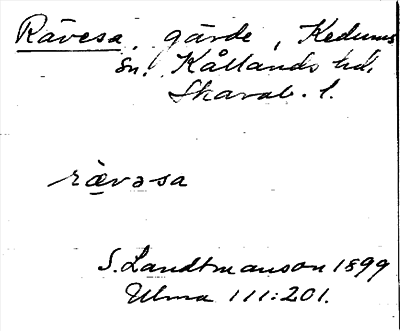 Rävesa, gärde, Kedums
sn, Kållands hd.
Skarab. l.
rævəsa
S. Landtmanson 1899
Ulma 111:201.